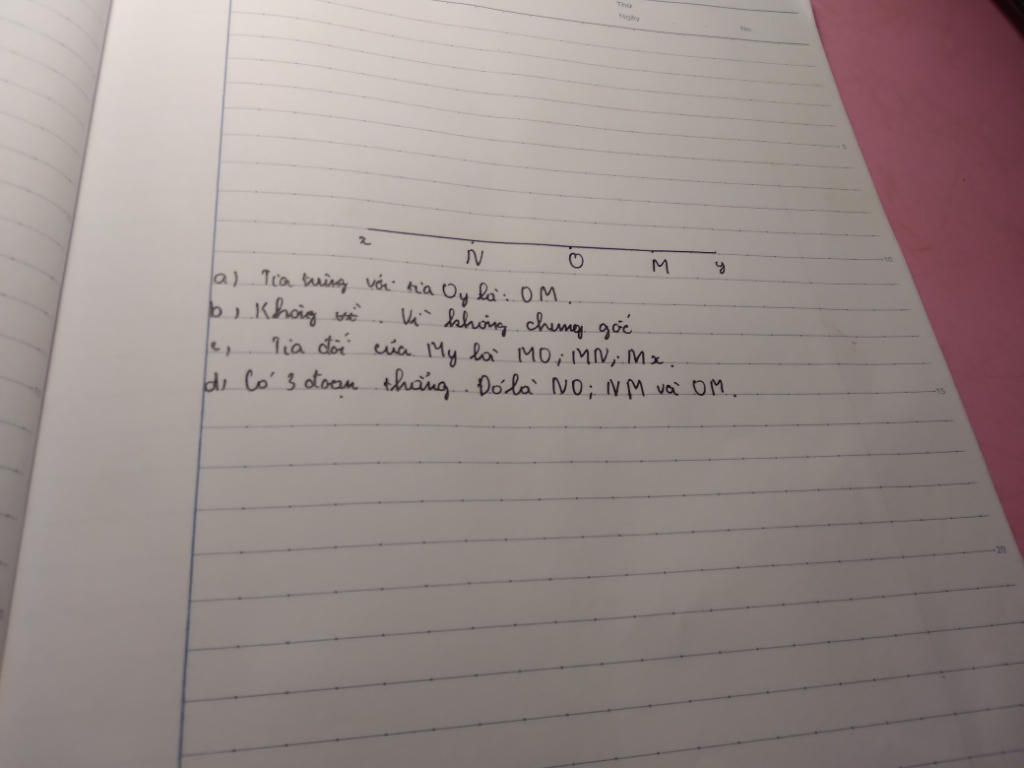 Thứ
Ngày
No.
5
x N O M y
10
a) Tia trùng với tia Oy là: OM.
b, Không vì. Vì không chung gốc
c, Tia đối của My là MO; MN; Mx.
d, Có 3 đoạn thẳng. Đó là NO; NM và OM.
15
20